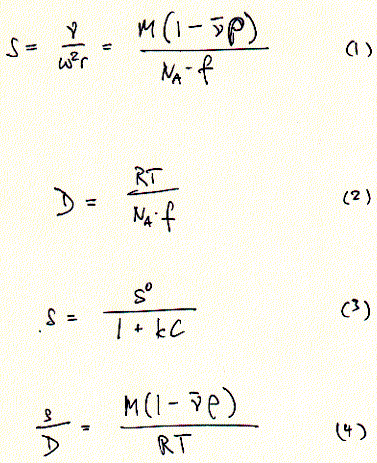 S = v / ω²r = M(1 - v̄ρ) / N_A·f (1)
D = RT / N_A·f (2)
s = s⁰ / 1 + kC (3)
s / D = M(1 - v̄ρ) / RT (4)